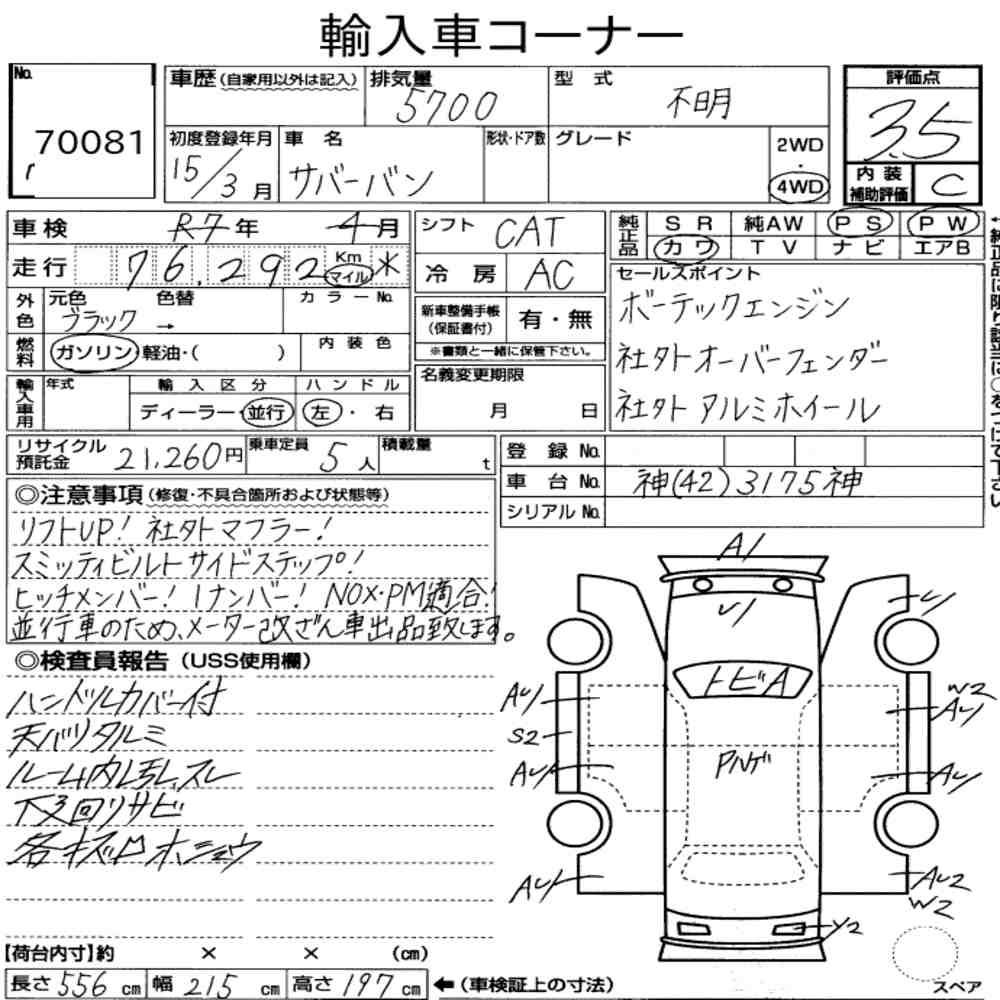 輸入車コーナー
No.
70081
車歴(自家用以外は記入)
排気量
5700
型 式
不明
評価点
3.5
初度登録年月
15/3月
車 名
サバーバン
形状・ドア数
グレード
2WD
・
4WD
内 装
補助評価
C
車検 R7年 4月
シフト CAT
純正品
S R 純AW P S P W
カワ T V ナビ エアB
走行 76,292 Km マイル ※
冷 房 AC
セールスポイント
ボーテックエンジン
社外オーバーフェンダー
社外アルミホイール
外色
元色 色替 カラーNo.
ブラック →
新車整備手帳
(保証書付)
有・無
※書類と一緒に保管下さい。
燃料
ガソリン・軽油・( )
内 装 色
名義変更期限
月 日
輸入車用
年式
輸 入 区 分
ハ ン ド ル
ディーラー・並行
左・右
リサイクル
預託金
21,260円
乗車定員
5人
積載量
t
登 録 No.
車 台 No. 神(42)3175神
シリアル No.
◎注意事項(修復・不具合箇所および状態等)
リフトUP! 社外マフラー!
スミッティビルトサイドステップ!
ヒッチメンバー! 1ナンバー! NOX・PM適合!
並行車のため、メーター改ざん車出品致します。
◎検査員報告(USS使用欄)
ハンドルカバー付
天バリタルミ
ルーム内汚レ、スレ
下廻リサビ
各キズ凹ホショウ
A1
U1
トビA
Pハゲ
AU1
S2
AU1
AU1
U1
W2
AU1
AU1
AU2
W2
Y2
スペア
【荷台内寸】約 × × (cm)
長さ 556 cm 幅 215 cm 高さ 197 cm ←(車検証上の寸法)